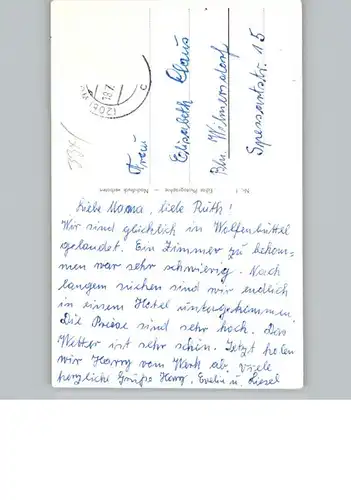 Frau
Elisabeth Claus
Bln. Wilmersdorf
Spessartstr. 15
Echte Photographie – Nachdruck verboten
Liebe Mama, liebe Ruth!
Wir sind glücklich in Wolfenbüttel
gelandet. Ein Zimmer zu bekom-
men war sehr schwierig. Nach
langem suchen sind wir endlich
in einem Hotel untergekommen.
Die Preise sind sehr hoch. Das
Wetter ist sehr schön. Jetzt holen
wir Harry vom Werk ab. Viele
herzliche Grüße Harry, Evelin u. Liesel